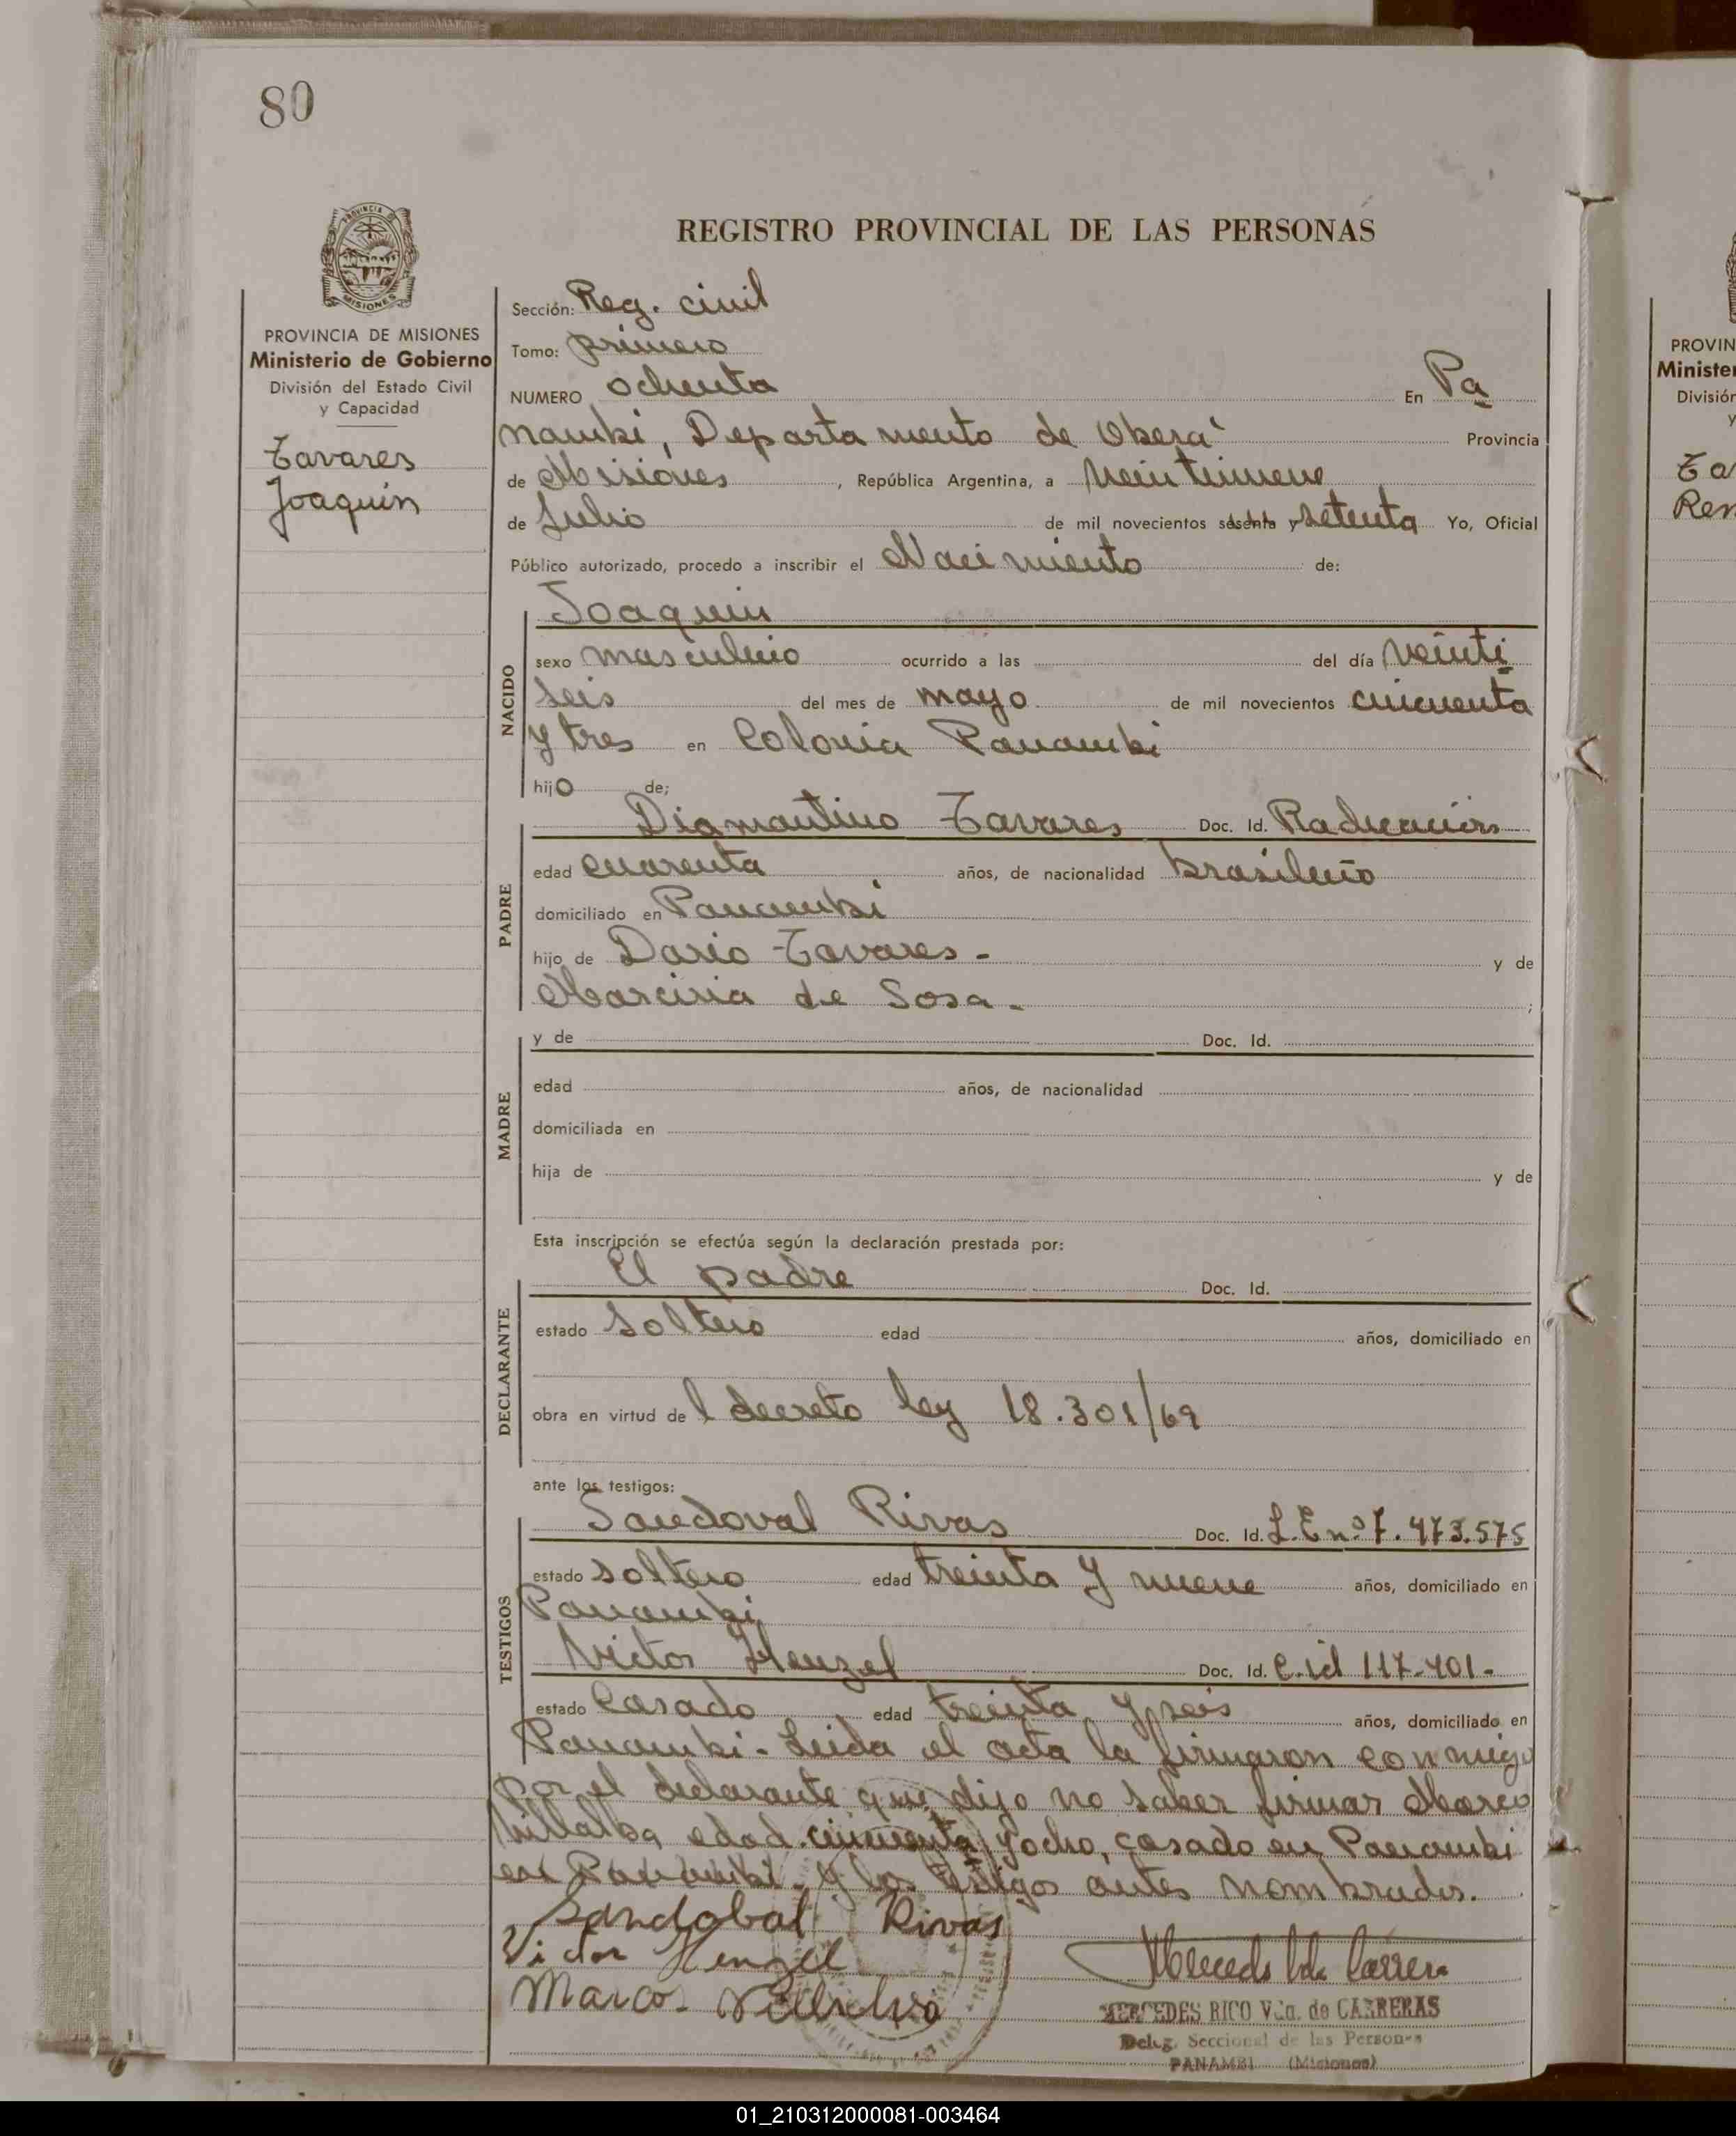 80
REGISTRO PROVINCIAL DE LAS PERSONAS
PROVINCIA DE MISIONES
Ministerio de Gobierno
División del Estado Civil
y Capacidad
Tavares
Joaquin
Sección: Reg. civil
Tomo: primero
NUMERO ochenta En Pa
nambi, Departamento de Oberá Provincia
de Misiones, República Argentina, a Veintinueve
de Julio de mil novecientos sesenta y setenta Yo, Oficial
Público autorizado, procedo a inscribir el Nacimiento de:
Joaquin
NACIDO
sexo masculino ocurrido a las del día veinti
seis del mes de mayo de mil novecientos cincuenta
y tres en Colonia Panambi
hijo de;
Diamantino Tavares Doc. Id. Radicación
PADRE
edad cuarenta años, de nacionalidad brasileño
domiciliado en Panambi
hijo de Dario Tavares - y de
de Sosa - ;
MADRE
y de Doc. Id.
edad años, de nacionalidad
domiciliada en
hija de y de
Esta inscripción se efectúa según la declaración prestada por:
El padre Doc. Id.
DECLARANTE
estado soltero edad años, domiciliado en
obra en virtud del decreto ley 18.301/69
ante los testigos:
Sandoval Rivas Doc. Id. L.E nº 7.473.575
TESTIGOS
estado soltero edad treinta y nueve años, domiciliado en
Panambi
Victor Henzel Doc. Id. C.id 117-401-
estado Casado edad treinta y seis años, domiciliado en
Panambi - Leida el acta la firmaron conmigo
por el declarante que dijo no saber firmar Marco
Villalba edad cincuenta y ocho, casado en Panambi
en Panambi. y los testigos antes nombrados.
Sandobal Rivas
Victor Henzel
Marcos
MERCEDES RICO Vda. de CARRERAS
Deleg. Seccional de las Personas
PANAMBI (Misiones)
PROVIN
Minister
División
y
Ta
Ren
01_210312000081-003464